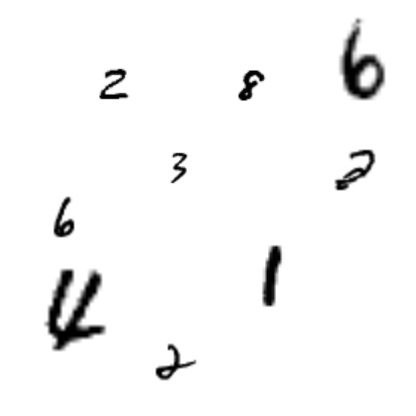 2 8 6
3 2
6
4 1
2